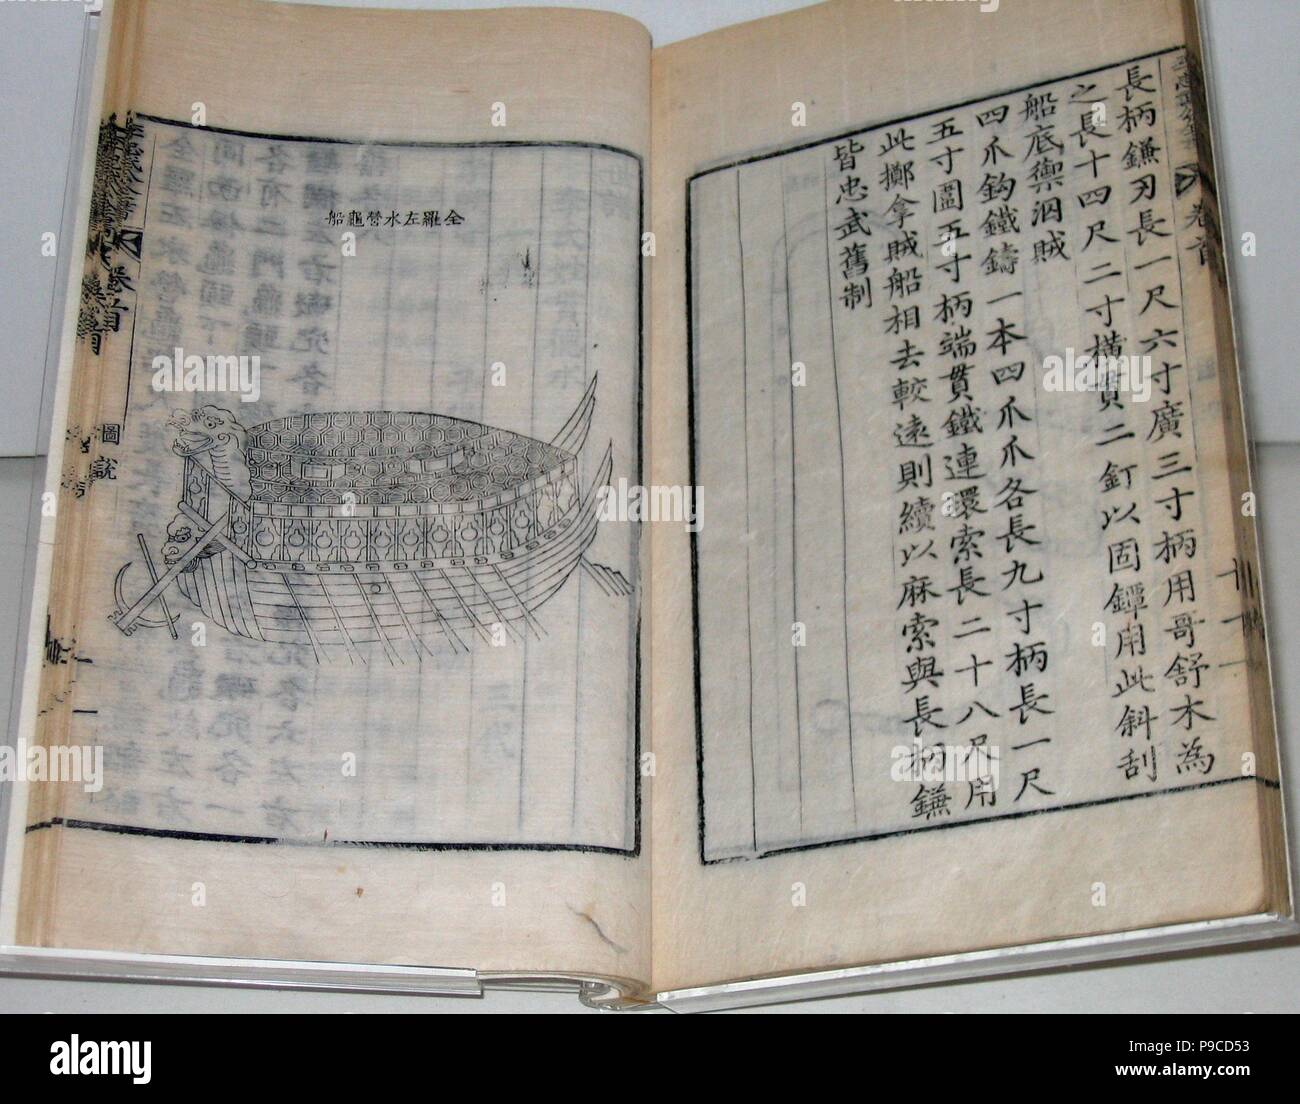 長柄鎌刃長一尺六寸廣三寸柄用哥舒木為
之長十四尺二寸橫貫二釘以固鐔用此斜刮
船底禦泅賊
四爪鈎鐵鑄一本四爪爪各長九寸柄長一尺
五寸圍五寸柄端貫鐵連環索長二十八尺用
此擲拿賊船相去較遠則續以麻索與長柄鎌
皆忠武舊制
卷首
全羅左水營龜船
卷首
圖說
alamy
Image ID: P9CD53
www.alamy.com